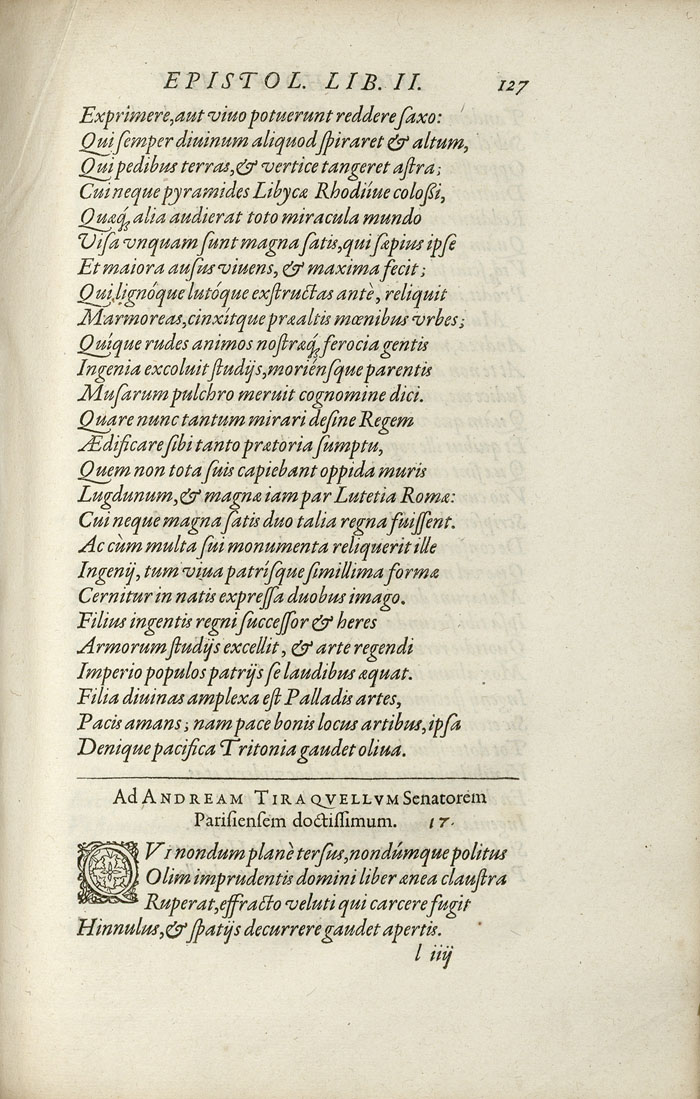 EPISTOL. LIB. II. 127
Exprimere,aut viuo potuerunt reddere ſaxo:
Qui ſemper diuinum aliquod ſpiraret & altum,
Qui pedibus terras,& vertice tangeret aſtra;
Cui neque pyramides Libycæ Rhodiíue coloßi,
Quæq́; alia audierat toto miracula mundo
Viſa vnquam ſunt magna ſatis,qui ſæpius ipſe
Et maiora auſus viuens, & maxima fecit;
Qui lignóque lutóque exſtructas antè, reliquit
Marmoreas,cinxítque præaltis mœnibus vrbes;
Quíque rudes animos noſtræq́; ferocia gentis
Ingenia excoluit ſtudijs,moriénſque parentis
Muſarum pulchro meruit cognomine dici.
Quare nunc tantum mirari deſine Regem
Ædificare ſibi tanto prætoria ſumptu,
Quem non tota ſuis capiebant oppida muris
Lugdunum,& magnæ iam par Lutetia Romæ:
Cui neque magna ſatis duo talia regna fuiſſent.
Ac cùm multa ſui monumenta reliquerit ille
Ingenij, tum viua patriſque ſimillima formæ
Cernitur in natis expreſſa duobus imago.
Filius ingentis regni ſucceſſor & heres
Armorum ſtudijs excellit, & arte regendi
Imperio populos patrijs ſe laudibus æquat.
Filia diuinas amplexa eſt Palladis artes,
Pacis amans; nam pace bonis locus artibus,ipſa
Denique pacifica Tritonia gaudet oliua.
Ad ANDREAM TIRAQVELLVM Senatorem
Pariſienſem doctiſſimum. 17.
QVi nondum planè terſus,nondúmque politus
Olim imprudentis domini liber ænea clauſtra
Ruperat,effracto veluti qui carcere fugit
Hinnulus,& ſpatijs decurrere gaudet apertis.
l iiij